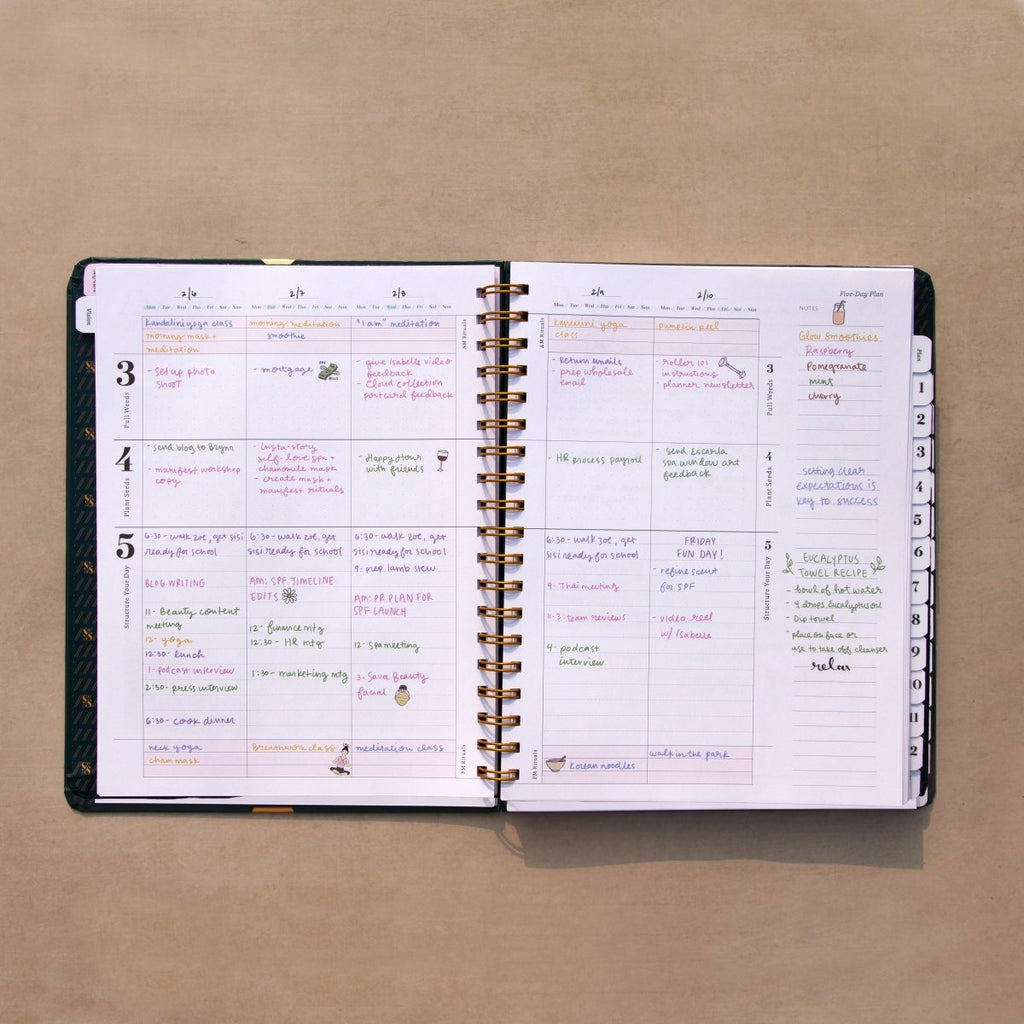 2/6
2/7
2/8
Mon Tue Wed Thu Fri Sat Sun
Mon Tue Wed Thu Fri Sat Sun
Mon Tue Wed Thu Fri Sat Sun
Kundalini yoga class
morning mask +
meditation
morning meditation
smoothie
"I am" meditation
AM Rituals
3
Pull Weeds
- set up photo
shoot
- mortgage
- give Isabelle video
feedback
- Cloud collection
postcard feedback
4
Plant Seeds
- send blog to Brynn
- manifest workshop
copy
- Insta-story
self-love spa +
chamomile mask
- create mask +
manifest rituals
- Happy Hour
with friends
5
Structure Your Day
6:30- walk zoe, get sisi
ready for school
BLOG WRITING
11- Beauty content
meeting
12- yoga
12:30- lunch
1- podcast interview
2:30- press interview
6:30- cook dinner
6:30- walk zoe, get
sisi ready for school
AM: SPF TIMELINE
EDITS
12- finance mtg
12:30- HR mtg
1:30- marketing mtg
6:30- walk zoe, get
sisi ready for school
9- prep lamb stew
AM: PR PLAN FOR
SPF LAUNCH
12- spa meeting
3- Sava Beauty
facial
neck yoga
cham mask
Breathwork class
meditation class
PM Rituals
Vision
2/9
2/10
Mon Tue Wed Thu Fri Sat Sun
Mon Tue Wed Thu Fri Sat Sun
Five-Day Plan
AM Rituals
yoga
class
pumpkin peel
- Return emails
- prep wholesale
email
- roller 101
instructions
- planner newsletter
3
Pull Weeds
- HR process payroll
- send Escarla
spa window art
feedback
4
Plant Seeds
6:30- walk zoe, get
sisi ready for school
9- Thai meeting
11-3- team reviews
4- podcast
interview
FRIDAY
FUN DAY!
- refine scent
for SPF
- video reel
w/ Isabelle
5
Structure Your Day
PM Rituals
Korean noodles
walk in the park
NOTES
Glow Smoothies
Raspberry
Pomegranate
mint
cherry
setting clear
expectations is
key to success
EUCALYPTUS
TOWEL RECIPE
- bowl of hot water
- 4 drops Eucalyptus oil
- Dip towel
- place on face or
use to take off cleanser
relax
Plan
1
2
3
4
5
6
7
8
9
10
11
2